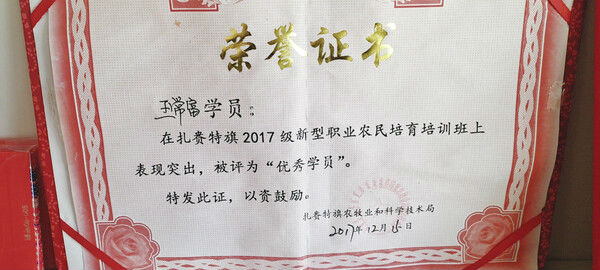 荣誉证书
王常富学员：
在扎赉特旗2017级新型职业农民培育培训班上
表现突出，被评为“优秀学员”。
特发此证，以资鼓励。
扎赉特旗农牧业和科学技术局
2017年12月15日